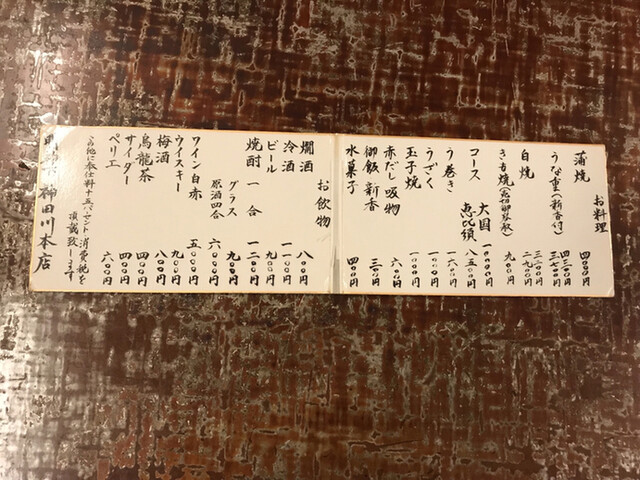 お料理
蒲焼 四〇〇〇円
うな重(新香付) 四三〇〇円
三七〇〇円
白焼 三二〇〇円
二九〇〇円
きも焼(売切御容赦) 九〇〇円
コース 大国 一〇〇〇〇円
恵比須 八五〇〇円
う巻き 一六〇〇円
うざく
玉子焼 一〇〇〇円
赤だし 吸物 六〇〇円
御飯 新香 三〇〇円
水菓子 四〇〇円
お飲物
燗酒 八〇〇円
冷酒 一一〇〇円
ビール 九〇〇円
焼酎 一合 一二〇〇円
グラス 九〇〇円
原酒四合 六〇〇〇円
ワイン白赤 五〇〇〇円
ウイスキー 九〇〇円
梅酒 八〇〇円
烏龍茶 四〇〇円
サイダー 四〇〇円
ペリエ 六〇〇円
この他に奉仕料十五パーセント、消費税を
頂戴致します
明神下 神田川本店